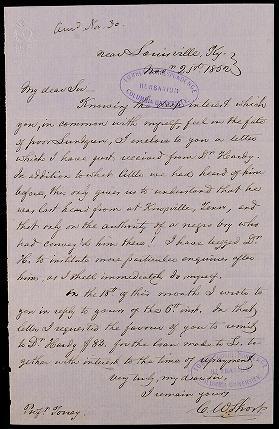 Ansd. Nov. 30.
near Louisville, Ky.
Novr. 23d. 1852
TORREY CORRESPONDENCE
HERBARIUM
COLUMBIA
My dear Sir
Knowing the deep interest which
you, in common with myself, feel in the fate
of poor Lindgren, I enclose to you a letter
which I have just received from Dr. Hardy.
In addition to what little we had heard of him
before, this only gives us to understand that he
was last heard from at Knoxville, Tenn, and
that only on the authority of a negro boy who
had convey'd him there! I have begged Dr.
H. to institute more particular enquiries after
him, as I shall immediately do myself.
On the 18th of this month I wrote to
you in reply to yours of the 6th inst. In that
letter I requested the favour of you to remit
to Dr. Hardy $82. for the loan made to L. to-
gether with interest to the time of repayment.
Very truly, my dear sir,
I remain yours
C. W. Short
Prof. Torrey